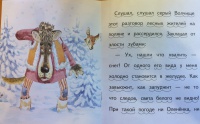 Слушал, слушал серый Волчище
этот разговор лесных жителей на
поляне и рассердился. Защёлкал от
злости зубами:
— Ух, хищно что хищно, —
снег! От одного его вида у меня
холодно становится в желудке. Как
заметёт, как запуржит — не то
что следов, света белого не видно!
При такой погоде ни Оленёнка, ни